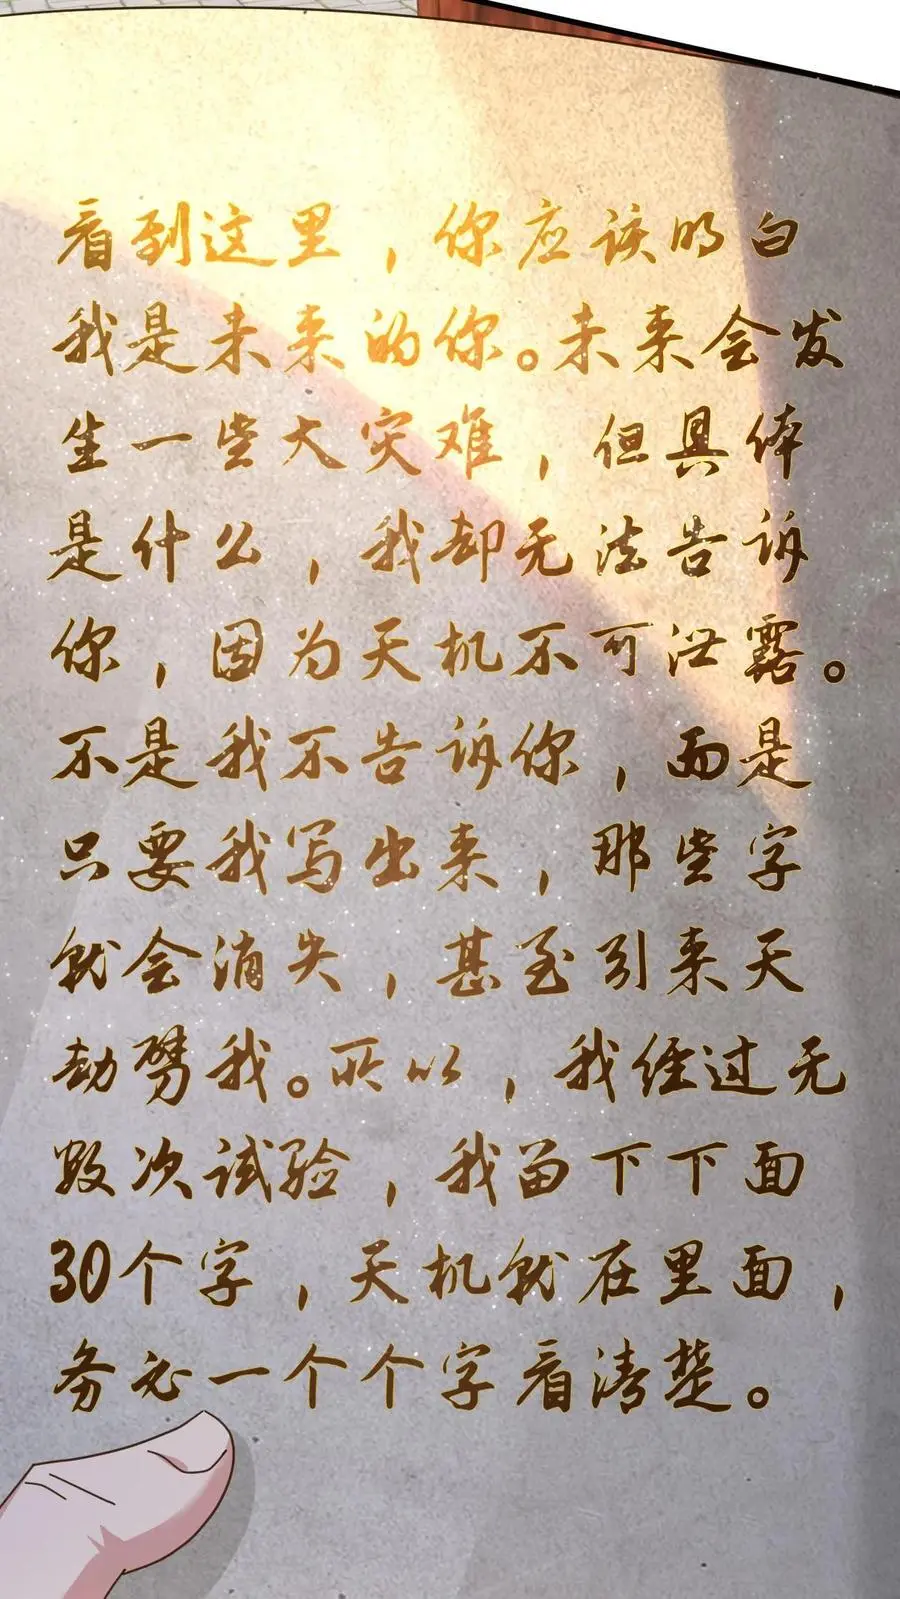 看到这里，你应该明白
我是未来的你。未来会发
生一些大灾难，但具体
是什么，我却无法告诉
你，因为天机不可泄露。
不是我不告诉你，而是
只要我写出来，那些字
就会消失，甚至引来天
劫劈我。所以，我经过无
数次试验，我留下下面
30个字，天机就在里面，
务必一个个字看清楚。